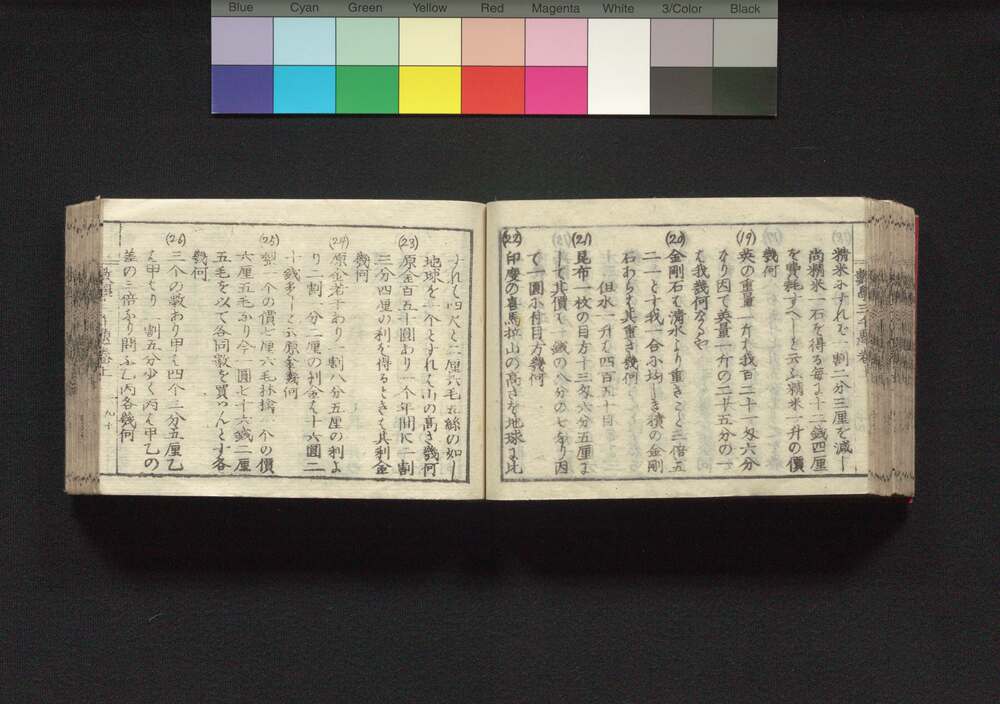 Blue Cyan Green Yellow Red Magenta White 3/Color Black
精米ニすれバ一割二分三厘を減し
尚精米一石を得る毎ニ十二銭四厘
を費耗すべしと云ふ精米一升の價
幾何
(19)
英の重量一斤ハ我百二十一匁六分
なり因て英量一斤の二十五分の一
ハ我幾何なるや
(20)
金剛石ハ清水より重きこと三倍五
二一とす我一合ニ均しき積の金剛
石あらバ其重さ幾何
但水一升ハ四百五十
(21)
昆布一枚の目方十三匁六分五厘に
して其價ハ銭の八分の七なり因
て一圓ニ付目方幾何
(22)
印度の喜馬拉山の高さを地球に比
すれバ四尺と二厘六毛五絲の如し
地球を一个とすれバ山の高さ幾何
(23)
原金百五十圓あり一个年間ニ二割
三分四厘の利を得るときハ其利金
幾何
(24)
原金若干あり一割八分五厘の利よ
り二割一分二厘の利金ハ十六圓二
十銭多しと云ふ原金幾何
(25)
梨一个の價七厘六毛林檎一个の價
六厘五毛なり今一圓七十六銭二厘
五毛を以て各同数を買ハんとす各
幾何
(26)
三个の数あり甲ハ四个三分五厘乙
ハ甲より一割五分少く丙ハ甲乙の
差の三倍なり問ふ乙丙各幾何